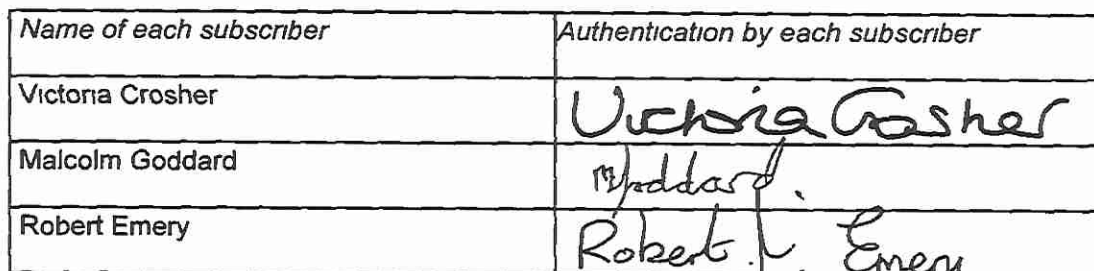 Name of each subscriber Authentication by each subscriber
Victoria Crosher Victoria Crosher
Malcolm Goddard MGoddard.
Robert Emery Robert J. Emery